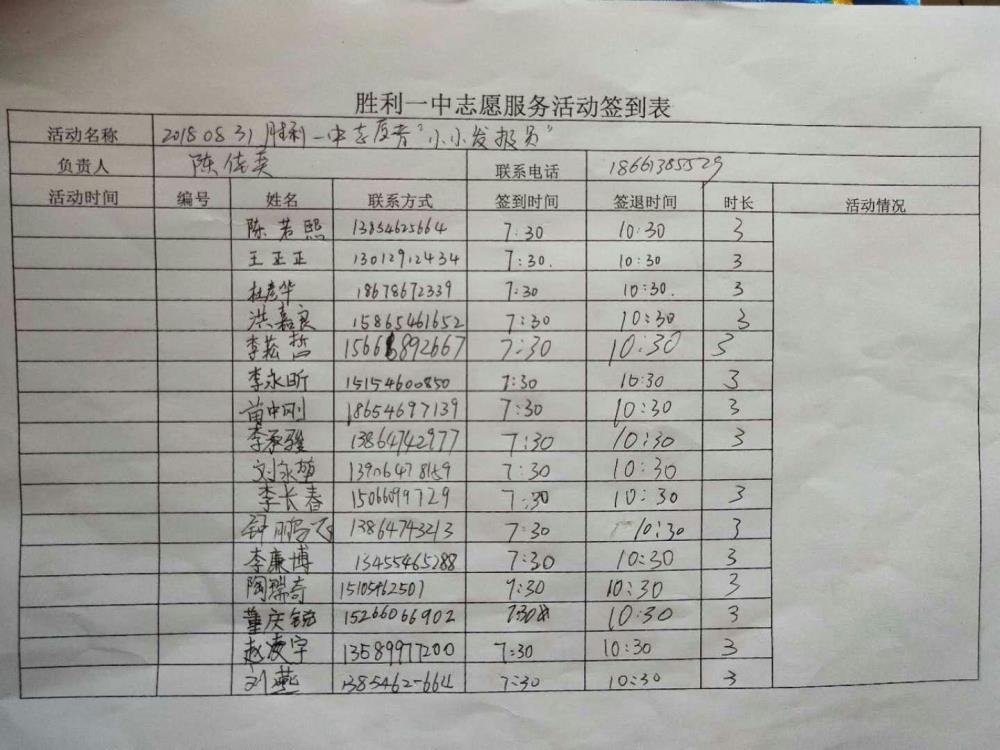 胜利一中志愿服务活动签到表
活动名称 20180831胜利一中志愿者“小小发报员”
负责人 陈佳英 联系电话 18661385529
活动时间 编号 姓名 联系方式 签到时间 签退时间 时长 活动情况
陈若熙 13854625664 7:30 10:30 3
王正正 13012912434 7:30. 10:30 3
杜彦华 18678672339 7:30 10:30. 3
洪嘉良 15865461652 7:30 10:30 3
李菘哲 7:30 10:30 3
李永昕 15154600850 7:30 10:30 3
苗中刚 18654697139 7:30 10:30 3
李承骏 13864742977 7:30 10:30 3
刘永 13906478159 7:30 10:30
李长春 15066099729 7:30 10:30 3
钟鹏飞 13864743213 7:30 10:30 3
李廉博 13455465288 7:30 10:30 3
陶瑞奇 15105462501 7:30 10:30 3
董庆 15266066902 7:30 10:30 3
赵凌宇 13589977200 7:30 10:30 3
刘燕 1385462-664 7:30 10:30 3